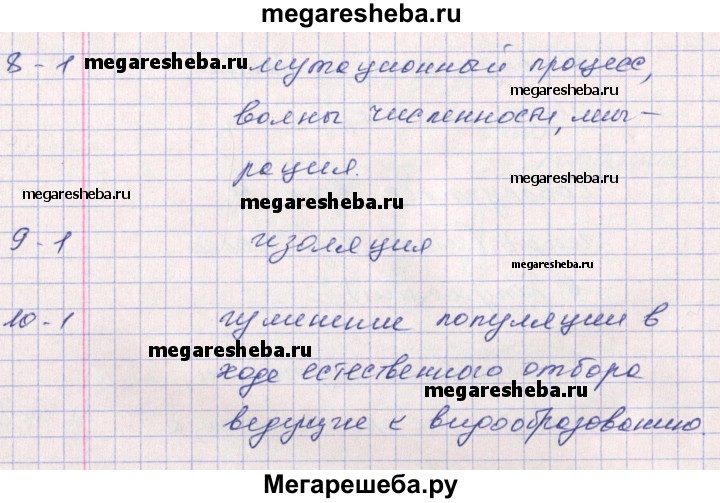 megaresheba.ru
8-1 megaresheba.ru мутационный процесс,
megaresheba.ru
волны численности, миг-
megaresheba.ru
рация.
megaresheba.ru
megaresheba.ru
9-1 изоляция
megaresheba.ru
10-1 популяции в
megaresheba.ru
ходе естественного отбора
megaresheba.ru
ведущие к видообразованию.
Мегарешеба.ру